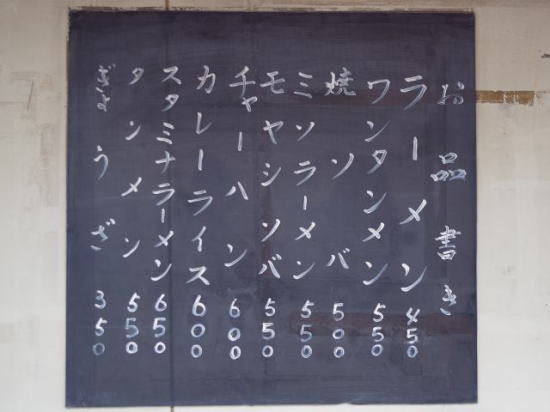 お品書き
ラーメン 450
ワンタンメン 550
焼ソバ 500
ミソラーメン 550
モヤシソバ 550
チャーハン 600
カレーライス 600
スタミナラーメン 650
タンメン 550
ぎょうざ 350